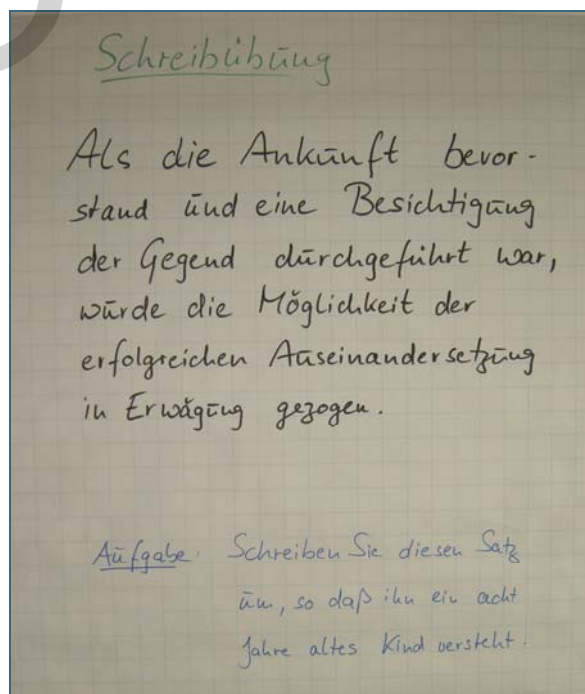 Schreibübung
Als die Ankunft bevor-
stand und eine Besichtigung
der Gegend durchgeführt war,
wurde die Möglichkeit der
erfolgreichen Auseinandersetzung
in Erwägung gezogen.
Aufgabe: Schreiben Sie diesen Satz
um, so daß ihn ein acht
Jahre altes Kind versteht.